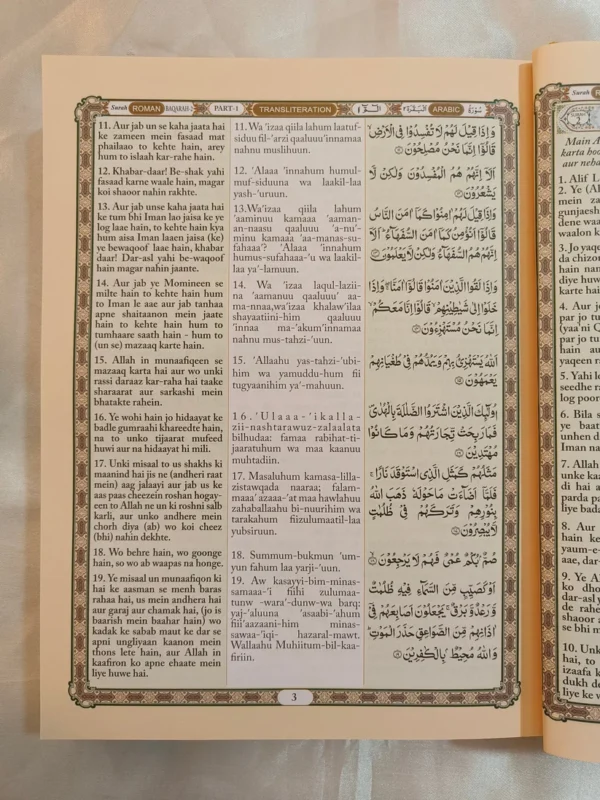 Surah ROMAN BAQARAH-2 PART-1 TRANSLITERATION الٓمّٓ ١ البقرة ٢ ARABIC سورة
11. Aur jab un se kaha jaata hai
ke zameen mein fasaad mat
phailaao to kehte hain, arey
hum to islaah kar-rahe hain.
12. Khabar-daar! Be-shak yahi
fasaad karne waale hain, magar
koi shaoor nahin rakhte.
13. Aur jab unse kaha jaata hai
ke tum bhi Iman lao jaisa ke ye
log laae hain, to kehte hain kya
hum aisa Iman laaen jaisa (ke)
ye bewaqoof laae hain, khabar
daar! Dar-asl yahi be-waqoof
hain magar nahin jaante.
14. Aur jab ye Momineen se
milte hain to kehte hain hum
to Iman le aae aur jab tanhaa
apne shaitaanon mein jaate
hain to kehte hain hum to
tumhaare saath hain - hum to
(un se) mazaaq karte hain.
15. Allah in munaafiqeen se
mazaaq karta hai aur wo unki
rassi daraaz kar-raha hai taake
sharaarat aur sarkashi mein
bhatakte rahein.
16. Ye wohi hain jo hidaayat ke
badle gumraahi khareedte hain,
na to unko tijaarat mufeed
huwi aur na hidaayat hi mili.
17. Unki misaal to us shakhs ki
maanind hai jis ne (andheri raat
mein) aag jalaayi aur jab us ke
aas paas cheezein roshan hogay-
een to Allah ne un ki roshni salb
karli, aur unko andhere mein
chorh diya (ab) wo koi cheez
(bhi) nahin dekhte.
18. Wo behre hain, wo goonge
hain, so wo ab waapas na honge.
19. Ye misaal un munaafiqon ki
hai ke aasman se menh baras
rahaa hai, us mein andhera hai
aur garaj aur chamak hai, (jo is
baarish mein baahar hain) wo
kadak ke sabab maut ke dar se
apni ungliyaan kaanon mein
thons lete hain, aur Allah in
kaafiron ko apne ehaate mein
liye huwe hai.
11. Wa ’izaa qiila lahum laatuf-
siduu fil-’arzi qaaluuu’innamaa
nahnu muslihuun.
12. ’Alaaa ’innahum humul-
muf-siduuna wa laakil-laa
yash-’uruun.
13.Wa’izaa qiila lahum
’aaminuu kamaaa ’aaman-
an-naasu qaaluuu ’a-nu’-
minu kamaaa ’aa-manas-su-
fahaaa’? ’Alaaa ’innahum
humus-sufahaaa-’u wa laakil-
laa ya’-lamuun.
14. Wa ’izaa laqul-lazii-
na ’aamanuu qaaluuu’ aa-
ma-nnaa,wa’izaa khalaw’ilaa
shayaatiini-him qaaluuu
’innaa ma-’akum’innamaa
nahnu mus-tahzi-’uun.
15. ’Allaahu yas-tahzi-’ubi-
him wa yamuddu-hum fii
tugyaanihim ya’-mahuun.
16. ’Ulaaa-’ikalla-
zii-nashtarawuz-zalaalata
bilhudaa: famaa rabihat-ti-
jaaratuhum wa maa kaanuu
muhtadiin.
17. Masaluhum kamasa-lilla-
zistawqada naaraa; falam-
maaa’ azaaa-’at maa hawlahuu
zahaballaahu bi-nuurihim wa
tarakahum fiizulumaatil-laa
yubsiruun.
18. Summum-bukmun ’um-
yun fahum laa yarji-’uun.
19. Aw kasayyi-bim-minas-
samaaa-’i fiihi zulumaa-
tunw -wara’-dunw-wa barq:
yaj-’aluuna ’asaabi-’ahum
fiii’aazaani-him minas-
sawaa-’iqi hazaral-mawt.
Wallaahu Muhiitum-bil-kaa-
firiin.
وَاِذَا قِيْلَ لَهُمْ لَا تُفْسِدُوْا فِى الْاَرْضِ ۙ
قَالُوْٓا اِنَّمَا نَحْنُ مُصْلِحُوْنَ ۝۱۱
اَلَآ اِنَّهُمْ هُمُ الْمُفْسِدُوْنَ وَلٰكِنْ لَّا
يَشْعُرُوْنَ ۝۱۲
وَاِذَا قِيْلَ لَهُمْ اٰمِنُوْا كَمَآ اٰمَنَ النَّاسُ
قَالُوْٓا اَنُؤْمِنُ كَمَآ اٰمَنَ السُّفَهَآءُ ؕ اَلَآ
اِنَّهُمْ هُمُ السُّفَهَآءُ وَلٰكِنْ لَّا يَعْلَمُوْنَ ۝۱۳
وَاِذَا لَقُوا الَّذِيْنَ اٰمَنُوْا قَالُوْٓا اٰمَنَّا ۖ وَاِذَا
خَلَوْا اِلٰى شَيٰطِيْنِهِمْ ۙ قَالُوْٓا اِنَّا مَعَكُمْ ۙ
اِنَّمَا نَحْنُ مُسْتَهْزِءُوْنَ ۝۱۴
اَللّٰهُ يَسْتَهْزِئُ بِهِمْ وَيَمُدُّهُمْ فِىْ طُغْيَانِهِمْ
يَعْمَهُوْنَ ۝۱۵
اُولٰٓئِكَ الَّذِيْنَ اشْتَرَوُا الضَّلٰلَةَ بِالْهُدٰى ۪
فَمَا رَبِحَتْ تِّجَارَتُهُمْ وَمَا كَانُوْا
مُهْتَدِيْنَ ۝۱۶
مَثَلُهُمْ كَمَثَلِ الَّذِى اسْتَوْقَدَ نَارًا ۚ
فَلَمَّآ اَضَآءَتْ مَا حَوْلَهٗ ذَهَبَ اللّٰهُ
بِنُوْرِهِمْ وَتَرَكَهُمْ فِىْ ظُلُمٰتٍ
لَّا يُبْصِرُوْنَ ۝۱۷
صُمٌّۢ بُكْمٌ عُمْىٌ فَهُمْ لَا يَرْجِعُوْنَ ۝۱۸
اَوْ كَصَيِّبٍ مِّنَ السَّمَآءِ فِيْهِ ظُلُمٰتٌ
وَّرَعْدٌ وَّبَرْقٌ ۚ يَجْعَلُوْنَ اَصَابِعَهُمْ فِىْٓ
اٰذَانِهِمْ مِّنَ الصَّوَاعِقِ حَذَرَ الْمَوْتِ ؕ
وَاللّٰهُ مُحِيْطٌۢ بِالْكٰفِرِيْنَ ۝۱۹
3
Surah
Main A
karta hoo
aur neha
1. Alif L
2. Ye (Al
mein za
gunjaesh
dene waa
waalon k
3. Jo yaqe
da chizon
hain nam
diye huw
karte hai
4. Aur jo
par jo tu
(yaa’ni Q
par jo tu
hain au
yaqeen r
5. Yahi lo
seedhe ra
log poor
6. Bila s
ye baat
unhen d
Iman na
7. Allah
unke kaa
di hai a
parda pa
liye bada
8. Aur
hain ke
yaum-e-
aae, dar-
9. Ye Al
ko dho
dar-asl y
de rahe
shaoor a
se bhi m
10. Unke
hai, to
izaafa k
dukh de
liye ke w